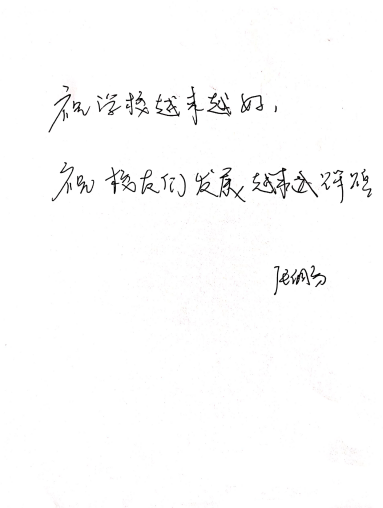 祝学校越来越好，
祝校友们发展越来越辉煌